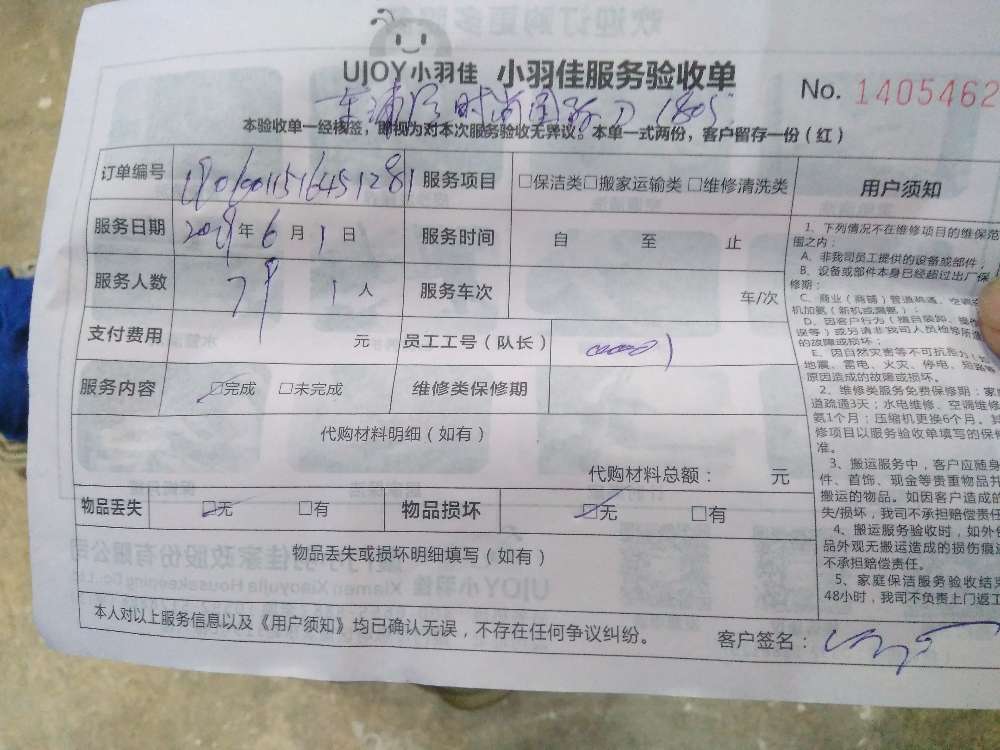 UJOY小羽佳 小羽佳服务验收单
No. 1405462
本验收单一经核签，即视为对本次服务验收无异议。本单一式两份，客户留存一份（红）
订单编号 服务项目 □保洁类□搬家运输类□维修清洗类 用户须知
服务日期 2019年6月1日 服务时间 自 至 止
服务人数 1人 服务车次 车/次
支付费用 元 员工工号（队长）
服务内容 □完成 □未完成 维修类保修期
代购材料明细（如有）
代购材料总额： 元
物品丢失 □无 □有 物品损坏 □无 □有
物品丢失或损坏明细填写（如有）
本人对以上服务信息以及《用户须知》均已确认无误，不存在任何争议纠纷。
客户签名：
1、下列情况不在维修项目的维保范
围之内：
A、非我司员工提供的设备或部件；
B、设备或部件本身已经超过出厂保
修期；
C、商业（商铺）管道疏通、空调
机加氨（新机或漏氨）；
D、因客户行为（擅自装卸、操作
误等）或另请非我司人员检修所造
的故障或损坏；
E、因自然灾害等不可抗
地震、雷电、火灾、停电、
原因造成的故障或损坏。
2、维修类服务免费保修期：家
道疏通3天；水电维修、空调维修
氨1个月；压缩机更换6个月。其
修项目以服务验收单填写的保修
准。
3、搬运服务中，客户应随身
件、首饰、现金等贵重物品并
搬运的物品。如因客户造成的
失/损坏，我司不承担赔偿责任
4、搬运服务验收时，如外包
品外观无搬运造成的损伤痕迹
不承担赔偿责任。
5、家庭保洁服务验收结束
48小时，我司不负责上门返工